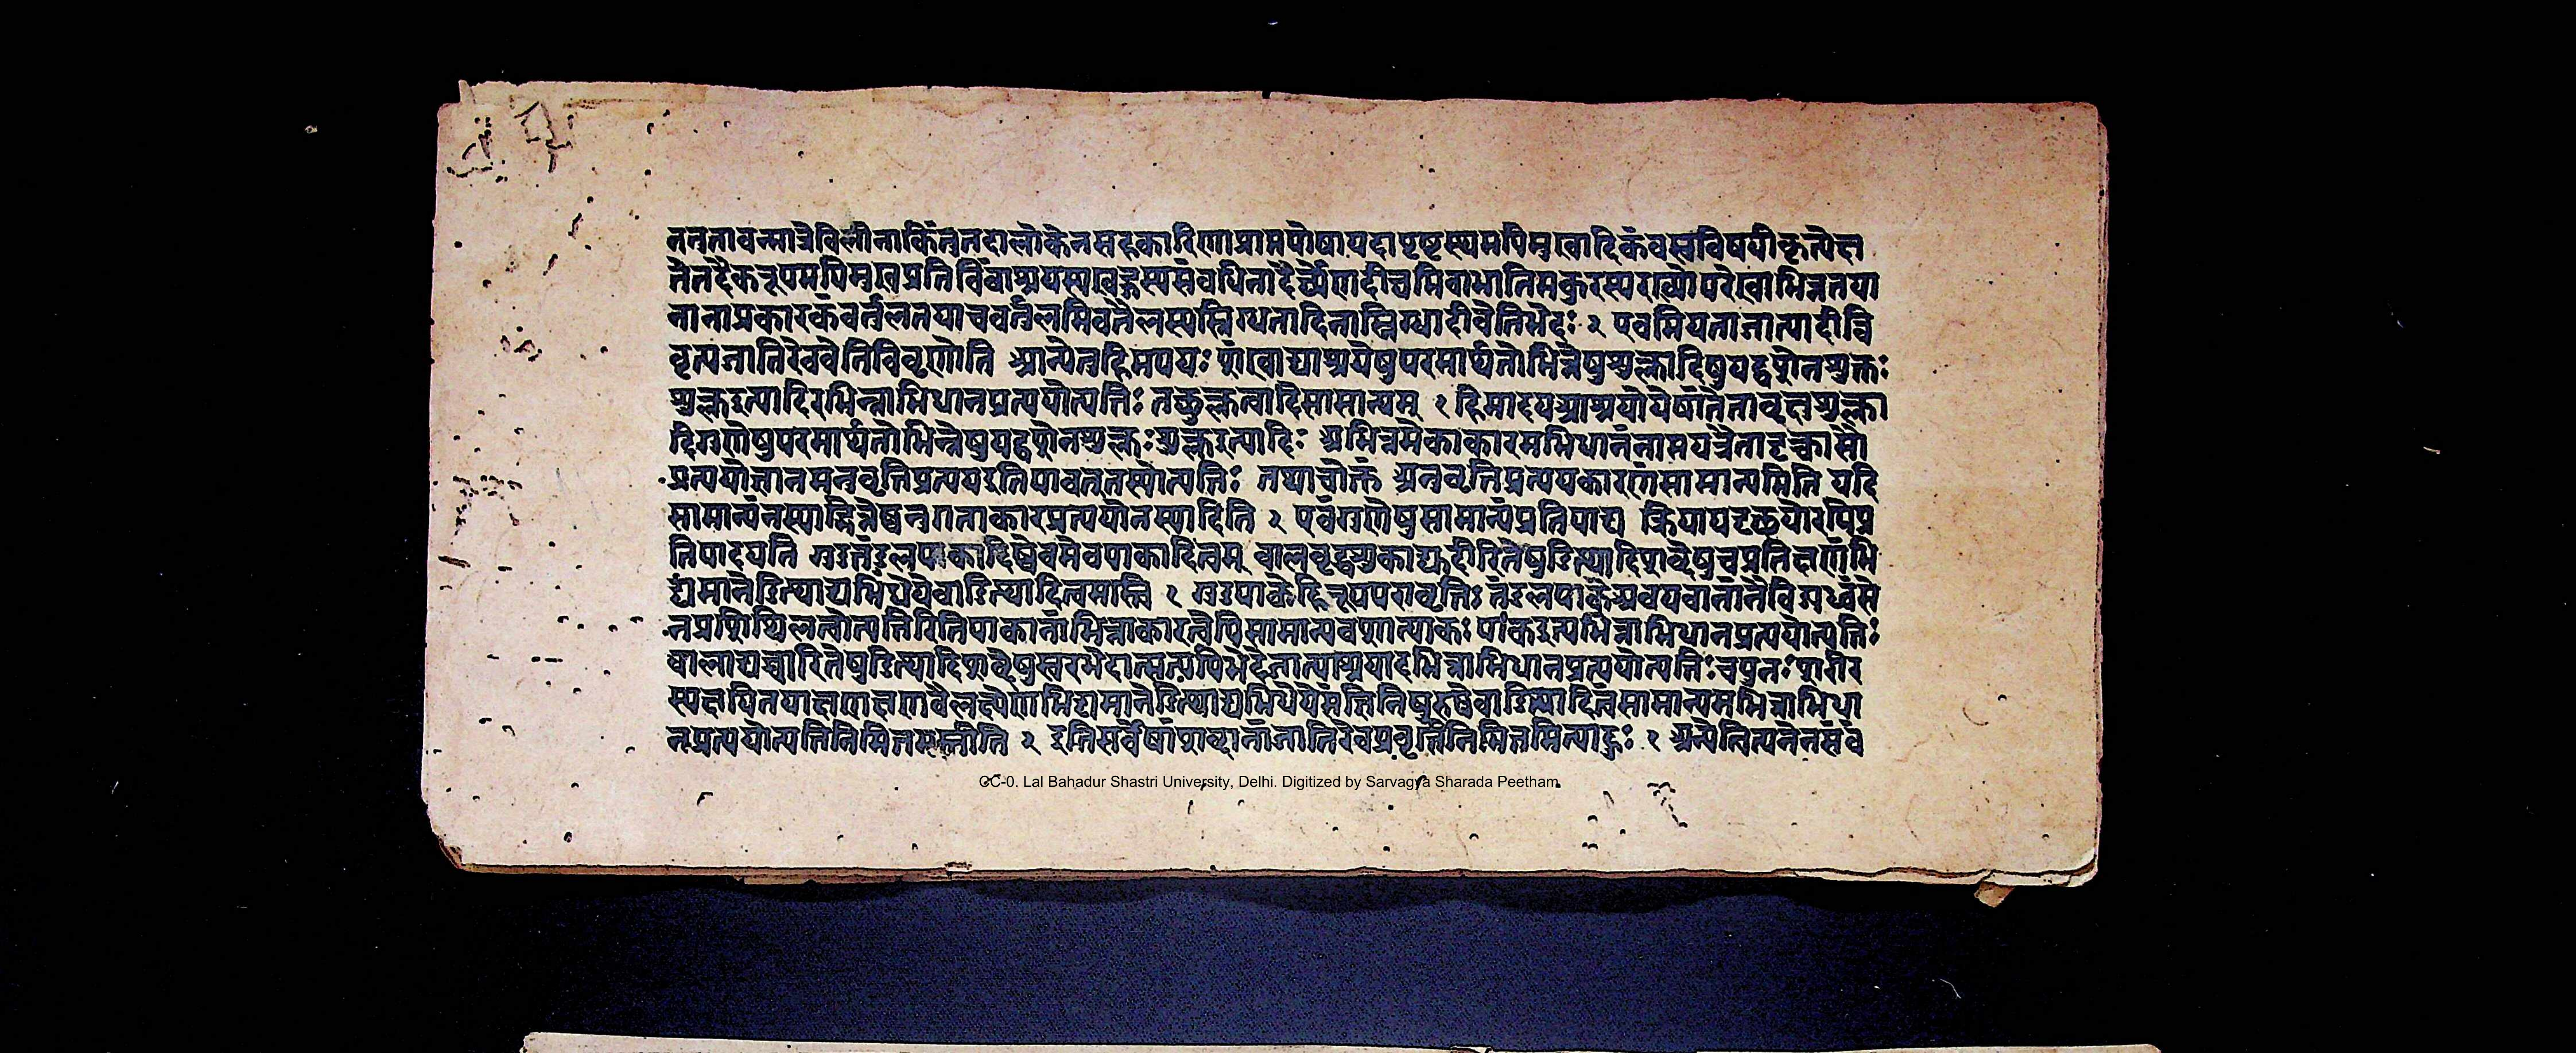 तनुतावन्मात्रेविलीनाकिंतुतदालोकेनसहकारिणाप्राप्तपोषायदापृष्टस्थमपिमुखादिकंवस्तुविषयीकृत्येत्त
तेतदैकरूपमपिमुखप्रतिविंबाश्रयस्यखड्गस्यसंबधिनादैर्घ्येणदीर्घमिवाभातिमकुरस्यशय्योपरेखाभिन्नतया
नानाप्रकारकंवर्तुलतयाचवर्तुलमिवतैलस्यस्निग्धतादिनास्निग्धादीवेतिभेदः २ एवमियताजात्यादीन्वि
वृत्यजातिरेववेतिविवृणोति अान्येतुहिमपयः शंखाद्याश्रयेषुपरमार्थतोभिन्नेषुशुक्लादिषुयद्वशेनशुक्लः
शुक्लइत्यादिरभिन्नाभिधानप्रत्ययोत्पत्तिः तच्छुक्लत्वादिसामान्यम् १ हिमादयआश्रयोयेषांतेतावृत्तशुक्ला
दिगुणेषुपरमार्थतोभिन्नेषुयद्वशेनशुक्लःशुक्लइत्यादिः अभिन्नमेकाकारमभिधानंनामयत्रैतादृक्चासौ
प्रत्ययोज्ञानमनुवृत्तिप्रत्ययइतियावत्तस्योत्पत्तिः तथाचोक्तं अनुवृत्तिप्रत्ययकारणंसामान्यमिति यदि
सामान्यंनस्याद्भिन्नेष्वनुगताकारप्रत्ययोनस्यादिति २ एवंगुणेषुसामान्यंप्रतिपाद्य क्रियायदृछयोरपिप्र
तिपादयति गुडतंडुलपाकादिष्वेवमेवपाकादित्वम् बालवृद्धशुकाद्युदीरितेषुडित्थादिशब्देषुचप्रतिक्षणंभि
द्यमानेडित्थाद्यभिधेयेवाडित्थादित्वमस्ति १ गुडपाकेहिरूपपरावृत्तिः तंडुलपाकेअवयवानांतेविगध्वंसे
नप्रशिथिलत्वोत्पत्तिरितिपाकानांभिन्नाकारत्वेपिसामान्यवशात्पाकः पाकइत्यभिन्नाभिधानप्रत्ययोत्पत्तिः
बालाद्युच्चारितेषुडित्थादिशब्देषुस्वरभेदात्सत्यपिभेदेतात्पाश्रयादभिन्नाभिधानप्रत्ययोत्पत्तिःचपुनःशरीर
स्यक्षयितयाक्षणक्षणवैलक्ष्येणभिद्यमानेडित्थाद्यभिधेयेसंज्ञिनिपुरुषेवाडित्थादित्वंसामान्यमभिन्नाभिधा
नप्रत्ययोत्पत्तिनिमित्तमस्तीति २ इतिसर्वेषांशब्दानांजातिरेवप्रवृत्तिनिमित्तमित्याहुः १ अन्येत्वित्यनेनसंब
CC-0. Lal Bahadur Shastri University, Delhi. Digitized by Sarvagya Sharada Peetham.